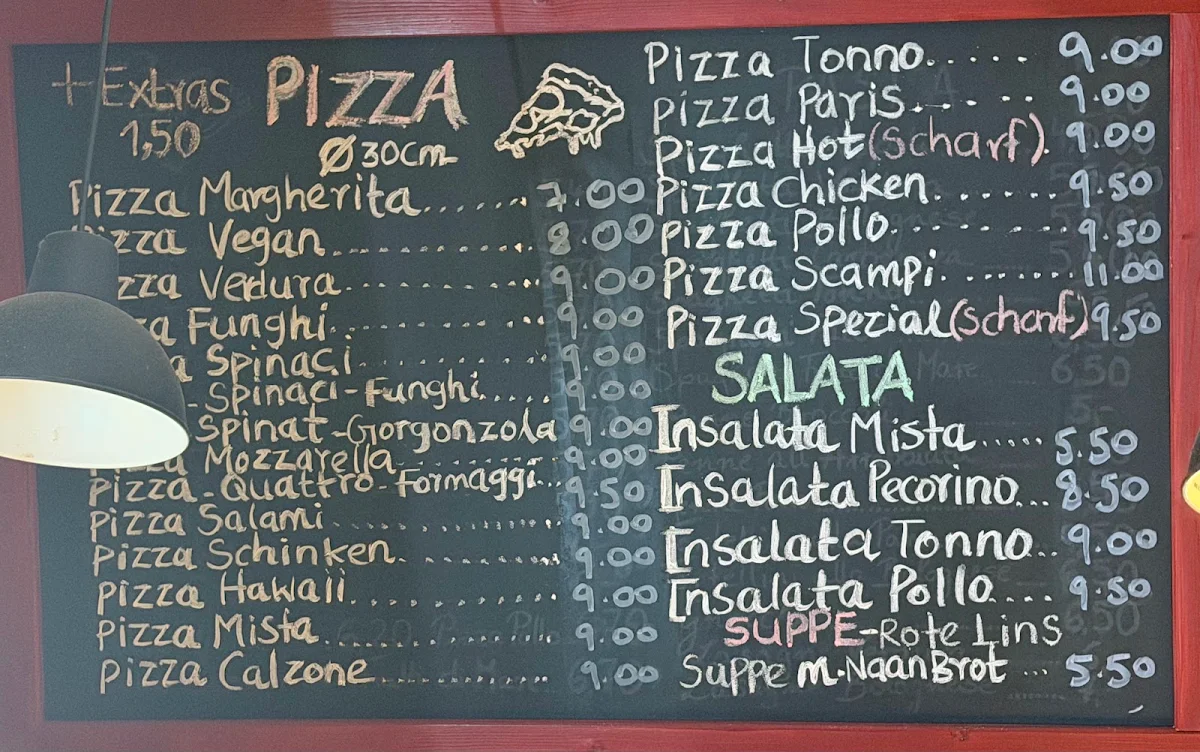 + Extras
1,50
PIZZA
Ø 30cm
Pizza Margherita....... 7.00
Pizza Vegan................ 8.00
zza Verdura............... 9.00
a Funghi................ 9.00
a Spinaci............... 9.00
- Spinaci-Funghi..... 9.00
Spinat-Gorgonzola 9.00
Pizza Mozzarella............ 9.00
Pizza-Quattro-Formaggi... 9.50
Pizza Salami.............. 9.00
Pizza Schinken............ 9.00
Pizza Hawaii.............. 9.00
Pizza Mista............... 9.00
Pizza Calzone............. 9.00
Pizza Tonno...... 9.00
Pizza Paris...... 9.00
Pizza Hot(Scharf). 9.00
Pizza Chicken...... 9.50
Pizza Pollo......... 9.50
Pizza Scampi........ 11.00
Pizza Spezial(scharf) 9.50
SALATA
Insalata Mista..... 5.50
Insalata Pecorino... 8.50
Insalata Tonno.. 9.00
Insalata Pollo.... 9.50
SUPPE-Rote Lins
Suppe m.Naan Brot ... 5.50